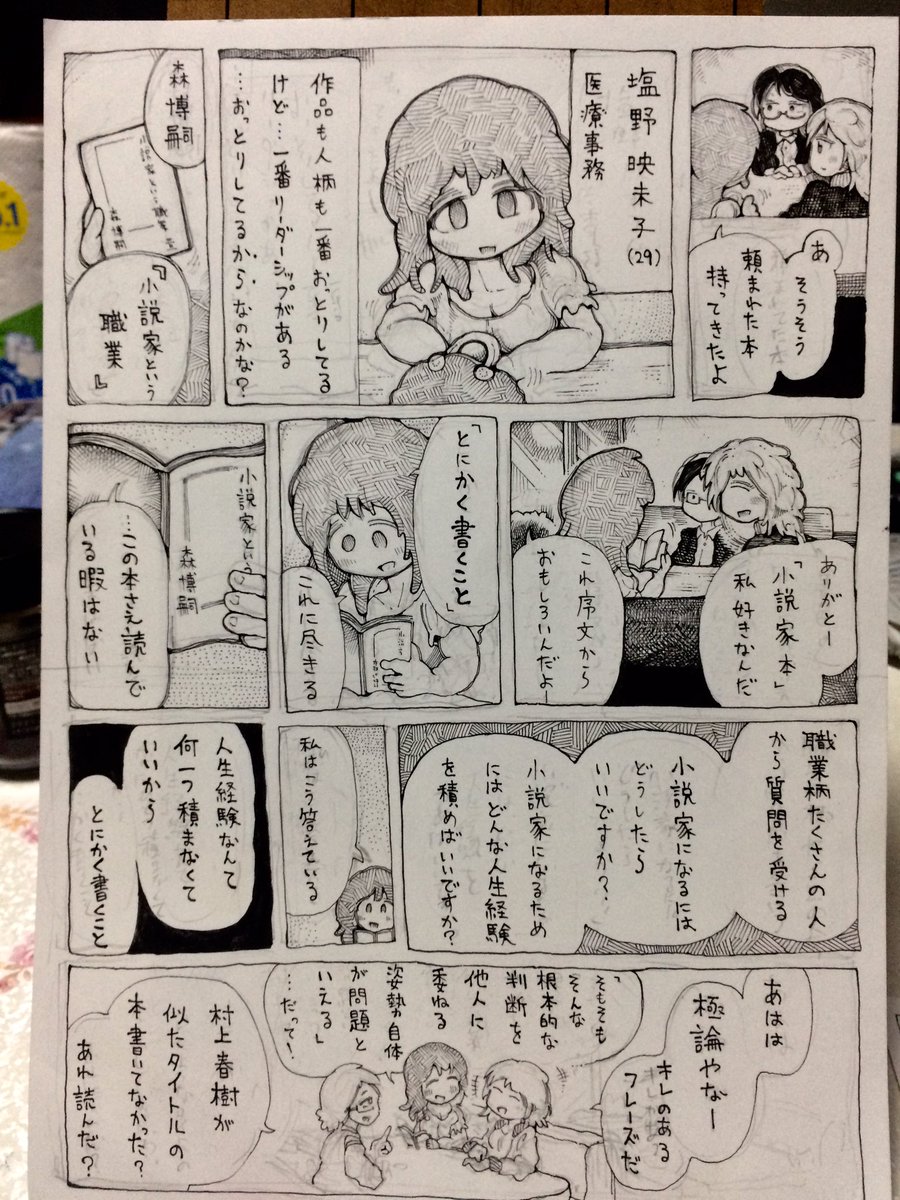 あ
そうそう
頼まれた本
持ってきたよ
塩野 映未子(29)
医療事務
作品も人柄も一番おっとりしてる
けど…一番リーダーシップがある
…おっとりしてるから、なのかな?
森博嗣
小説家という職業
森博嗣
『小説家という
職業』
ありがとー
「小説家本」
私好きなんだ
これ序文から
おもしろいんだよ
「とにかく書くこと」
これに尽きる
小説家という
森博嗣
…この本さえ読んで
いる暇はない
職業柄たくさんの人
から質問を受ける
小説家になるには
どうしたら
いいですか?
小説家になるため
にはどんな人生経験
を積めばいいですか?
私はこう答えている
人生経験なんて
何一つ積まなくて
いいから
とにかく書くこと
あはは
極論やなー
キレのある
フレーズだ
「そもそも
そんな
根本的な
判断を
他人に
委ねる
姿勢自体
が問題と
いえる」
…だって!
村上春樹が
似たタイトルの
本書いてなかった?
あれ読んだ?